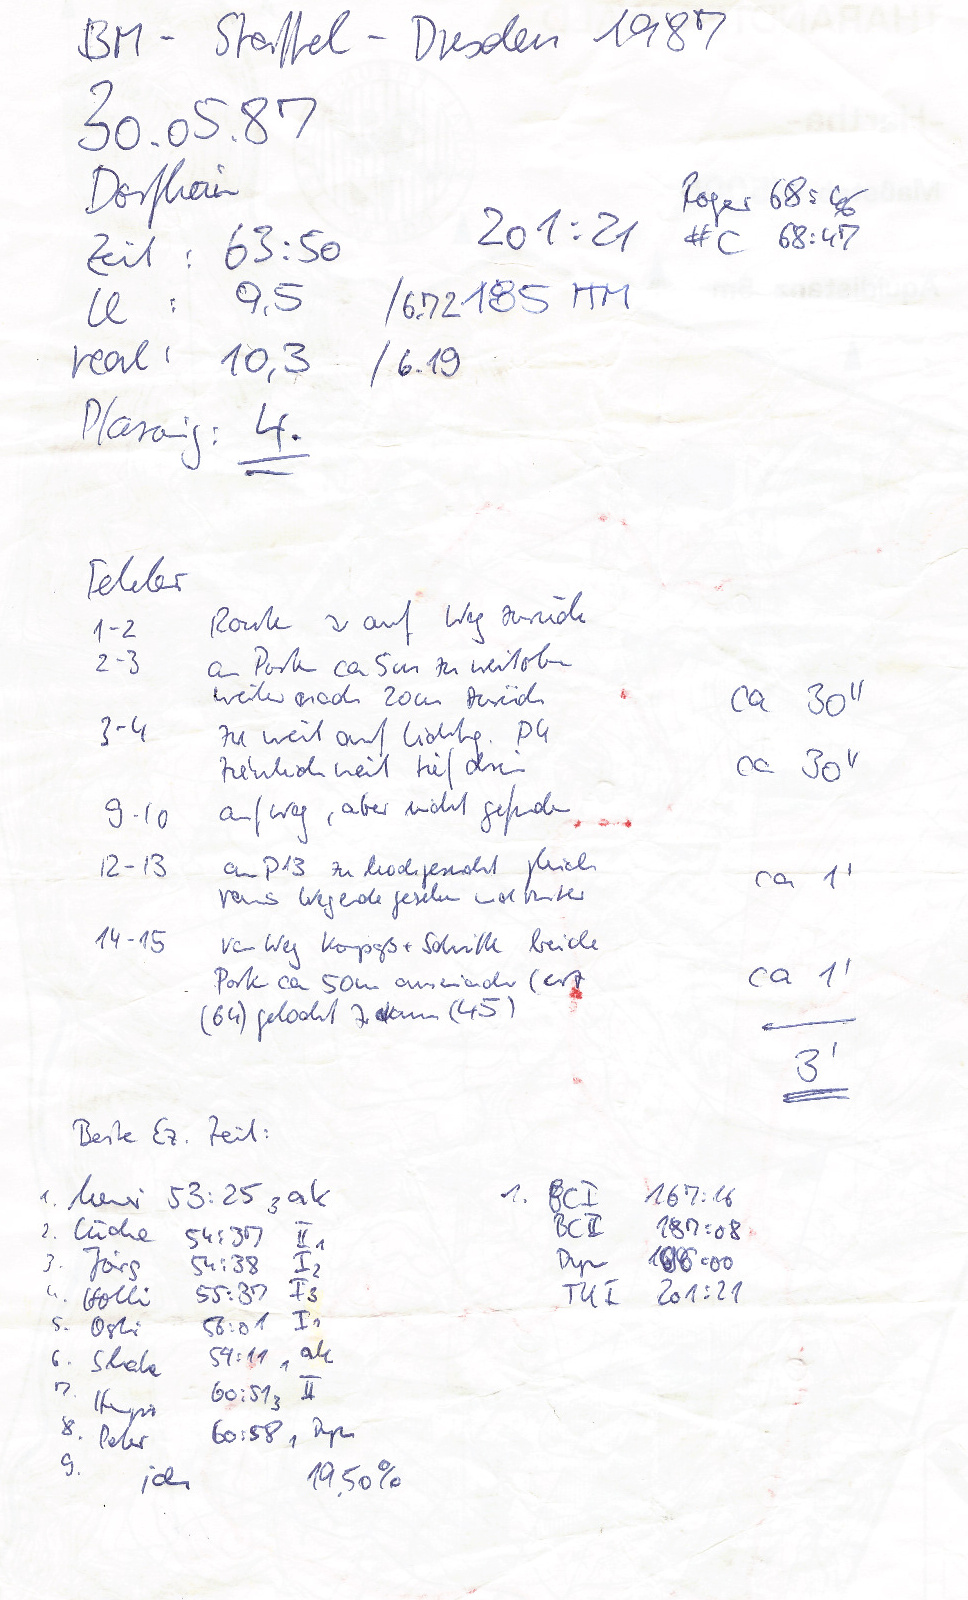 BM - Staffel - Dresden 1987
30.05.87
Dorfhain
Roger 68:46
Zeit : 63:50 201:21 #C 68:47
9,5 /6.72 185 HM
real: 10,3 /6.19
Plazierung: 4.
Fehler
1-2 Route auf Weg zurück
2-3 an Posten ca 5m zu weit oben
weiter nach 20m zurück ca 30"
3-4 zu weit auf Lichtg. P4
ziemlich weit tief drin ca 30"
9-10 auf Weg, aber nicht gefunden
12-13 an P13 zu hoch gesucht gleich
Wegende gesehen ca 1'
14-15 von Weg Kompaß + Schritte beide
Posten ca 50m auseinander (erst ca 1'
(64) gelocht dann (45)
3'
Beste Ez. Zeit:
1. 53:25, 3 ak 1. BC I 167:16
2. 54:37 II 1 BC II 187:08
3. Jörg 54:38 I 2 00
4. Holli 55:37 I 3 TU I 201:21
5. 56:01 I 1
6. 59:11, 1 ak
7. 60:51, 3 II
8. Peter 60:58, 1
9. ich 19,50%